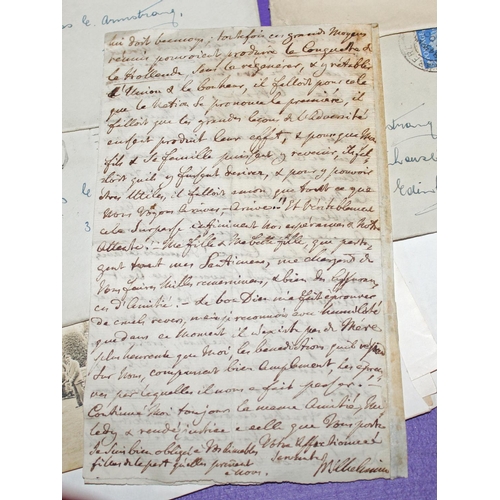 s E. Armstrong.
lui doit beaucoup; toutefois ces grands moyens
reunis pouvoient produire la Conquette de
la Hollande, sans la regenerer, & y retablir
l'Union & le bonheur, il falloit pour cela
que la Nation se prononce la premiere, il
falloit que les grandes leçons de l'adversité
eussent produit leur effet, & pour que Mon
fils & Sa famille puissent y revenir, il fal-
loit qu'ils y fussent desirés, & pour y pouvoir
etres Utiles, il falloit enfin que tout ce que
Nous Voyons Arriver, Arrivent! Et veritablement
cela Surpasse infiniment nos esperances & Notre
Attente! - Ma fille & Ma belle fille, que parta-
gent tout mes Sentimens, me chargent de
Vous faire Milles remercimens, & bien des Assuran-
ces d'Amitié: - Le bon Dieu m'a fait eprouver
de cruels revers, mais je reconnois avec humilité
que dans ce Moment il n'existe pas de Mere
plus heureuse que Moi, les benedictions qu'il repand
Sur Nous, compensent bien Amplement les epreu-
ves par lesquelles il nous a fait passer: -
Continuez Moi toujours la meme Amitié, My
Lady, & rendez justice a celle que Vous porte
Je Suis bien obligée
filles de la part qu'elles prennent
a nous.
Votre Affectionnée
Wilhelmine
s E.
3
strong
Edinb